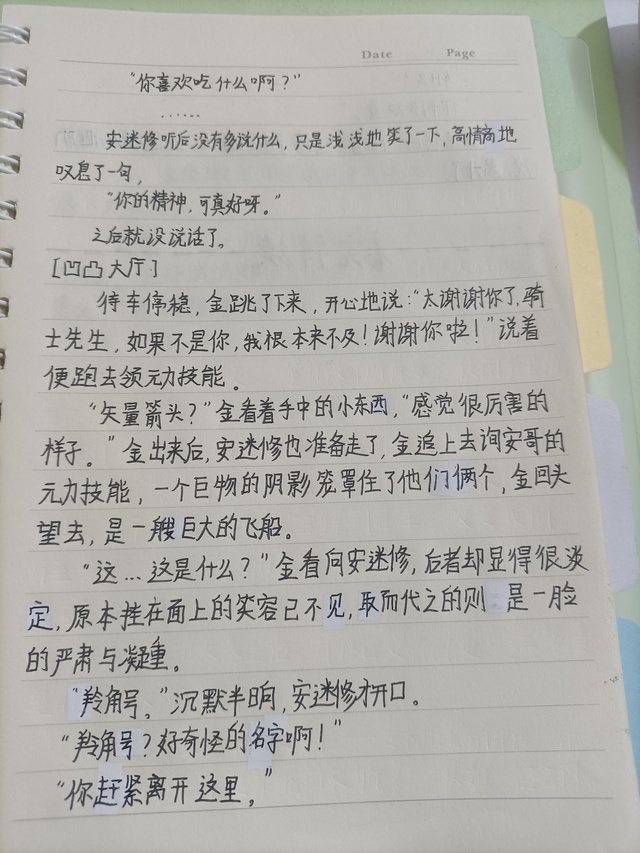 Date Page
“你喜欢吃什么啊？”
......
安迷修听后没有多说什么，只是浅浅地笑了一下，高情商地
叹息了一句，
“你的精神，可真好呀。”
之后就没说话了。
[凹凸大厅]
待车停稳，金跳了下来，开心地说：“太谢谢你了，骑
士先生，如果不是你，我根本来不及！谢谢你啦！”说着
便跑去领元力技能。
“矢量箭头？”金看着手中的小东西，“感觉很厉害的
样子。”金出来后，安迷修也准备走了，金追上去询安哥的
元力技能，一个巨物的阴影笼罩住了他们俩个，金回头
望去，是一艘巨大的飞船。
“这...这是什么？”金看向安迷修，后者却显得很淡
定，原本挂在面上的笑容已不见，取而代之的则是一脸
的严肃与凝重。
“羚角号。”沉默半晌，安迷修才开口。
“羚角号？好奇怪的名字啊！”
“你赶紧离开这里。”